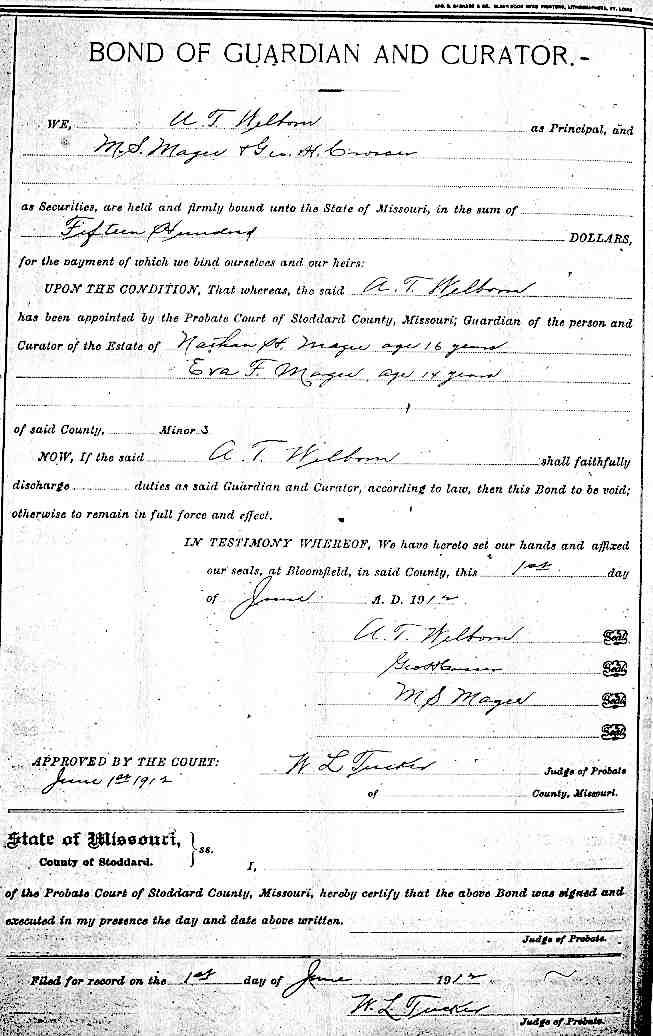 BOND OF GUARDIAN AND CURATOR.-
WE, A. T. Welborn as Principal, and
M. S. Magee & Geo. H. Crosser
as Securities, are held and firmly bound unto the State of Missouri, in the sum of
Fifteen Hundred DOLLARS,
for the payment of which we bind ourselves and our heirs:
UPON THE CONDITION, That whereas, the said A. T. Welborn
has been appointed by the Probate Court of Stoddard County, Missouri; Guardian of the person and
Curator of the Estate of Nathan H. Magee age 16 years
Eva F. Magee age 14 years
of said County, Minor s
NOW, If the said A. T. Welborn shall faithfully
discharge duties as said Guardian and Curator, according to law, then this Bond to be void;
otherwise to remain in full force and effect.
IN TESTIMONY WHEREOF, We have hereto set our hands and affixed
our seals, at Bloomfield, in said County, this 1st day
of June A. D. 1912
A. T. Welborn Seal
Geo H Crosser Seal
M S Magee Seal
Seal
APPROVED BY THE COURT: W L Tucker Judge of Probate
June 1st 1912 of County, Missouri.
State of Missouri,
County of Stoddard. ss. I,
of the Probate Court of Stoddard County, Missouri, hereby certify that the above Bond was signed and
executed in my presence the day and date above written.
Judge of Probate.
Filed for record on the 1st day of June 1912
W. L Tucker Judge of Probate.